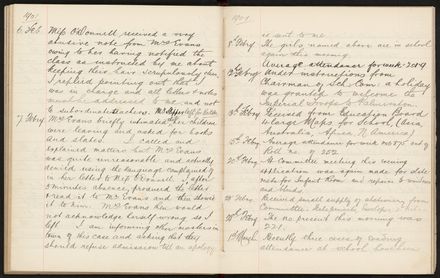 1901
6 Feb Miss O'Donnell received a very
abusive note from Mrs Evans
owing to her having notified the
class as instructed by me about
keeping their hair scrupulously clean
I replied pointing out that I
was in charge and all letters & notes
must be addressed to me and not
to subordinate teachers.
7 Febry Mrs Evans briefly intimated her children
were leaving and asked for books
and slates. I called and
explained matters but Mrs Evans
was quite unreasonable and actually
denied using the language complained of
in her letter to Miss O'Donnell. I after
5 minutes absence, produced the letter
& read it to Mrs Evans and then showed
it to him. Mrs Evans then would
not acknowledge herself wrong so I
left. I am informing other masters in
town of this case and asking that they
should refuse admission till an apology
1901
is sent to me.
The girls named above are in school
again this morning
Average attendance for week 204
Under instructions from
Chairman of Sch. Com. a holiday
was granted to welcome the
Imperial Troops to Palmerston.
Received from Education Board
4 large Maps for School (Asia,
Australia, Africa, N. America)
Average attendance for week
Roll no. of 252.
At Committee meeting this evening
application was again made for
and blinds.
Received small supply of stationery from
Committee
The no. present this morning was
221.
Recently three cases of
attendance at school